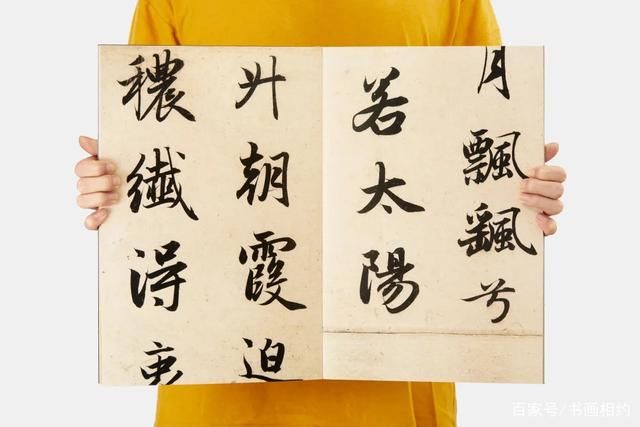 月飄颻兮
若太陽
升朝霞迫
穠纖得衷
百家号/书画相约